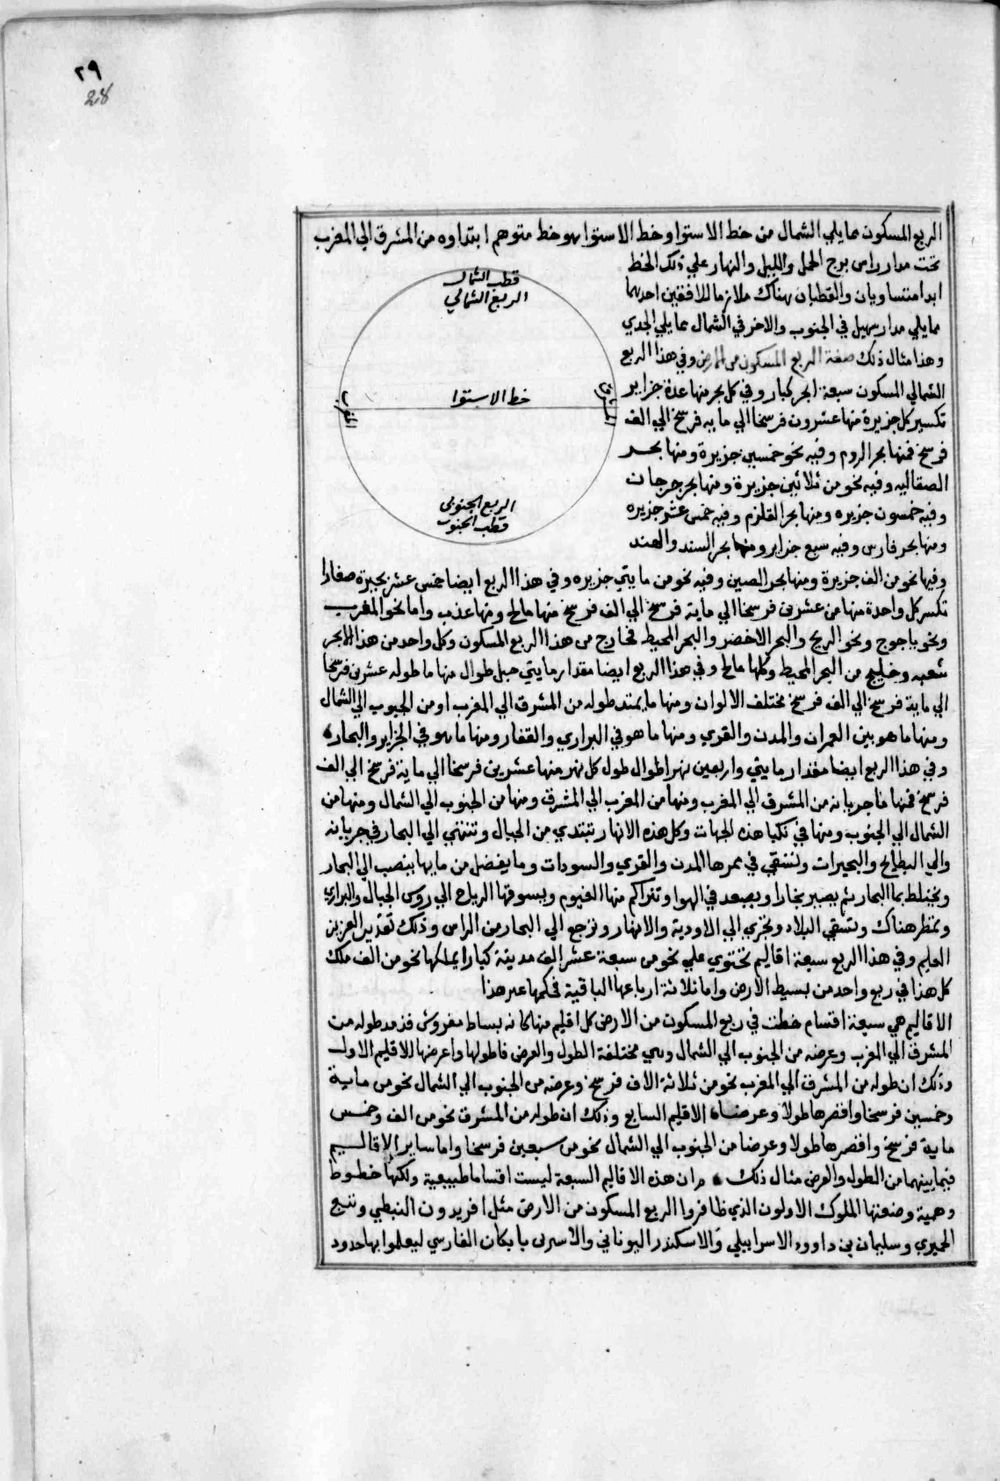 ٢٩
28
الربع المسكون مما يلي الشمال من خط الاستوا وخط الاستوا هو خط متوهم ابتداوه من المشرق الي المغرب
تحت مدار راس برج الحمل والليل والنهار علي ذلك الخط
ابدا متساويان والقطبان هناك ملازما للافقين احدهما
مما يلي مدار سهيل في الجنوب والاخر في الشمال مما يلي الجدي
وهذا مثال ذلك صفة الربع المسكون من الارض وفي هذا الربع
الشمالي المسكون سبعة ابحر كبار وفي كل بحر منها عدة جزاير
تكسير كل جزيرة منها عشرون فرسخا الي مايه فرسخ الي الف
فرسخ فمنها بحر الروم وفيه نحو خمسين جزيرة ومنها بحر
الصقاليه وفيه نحو من ثلاثين جزيرة ومنها بحر جرجان
وفيه خمسون جزيره ومنها بحر القلزم وفيه خمس عشر جزيره
ومنها بحر فارس وفيه سبع جزاير ومنها بحر السند والهند
قطب الشمال
الربع الشمالي
خط الاستوا
المشرق
المغرب
الربع الجنوبي
قطب الجنوب
وفيها نحو من الف جزيرة ومنها بحر الصين وفيه نحو من مايتي جزيره وفي هذا الربع ايضا خمس عشر بحيرة صغارا
تكسير كل واحدة منها من عشرين فرسخا الي ماية فرسخ الي الف فرسخ منها مالح ومنها عذب واما نحو المغرب
ونحو ياجوج ونحو الريح والبحر الاخضر والبحر المحيط فخارج من هذا الربع المسكون وكل واحد من هذا الابحر
شعبه وخليج من البحر المحيط وكلها مالح وفي هذا الربع ايضا مقدار مايتي جبل طوال منها ما طوله عشرين فرسخا
الي ماية فرسخ الي الف فرسخ مختلف الالوان ومنها ما يمتد طوله من المشرق الي المغرب او من الجنوب الي الشمال
ومنها ما هو بين العمران والمدن والقري ومنها ما هو في البراري والقفار ومنها ما هو في الجزاير والبحار
وفي هذا الربع ايضا مقدار مايتي واربعين نهرا طوال طول كل نهر منها عشرين فرسخا الي ماية فرسخ الي الف
فرسخ فمنها ما جريانه من المشرق الي المغرب ومنها من المغرب الي المشرق ومنها من الجنوب الي الشمال ومنها من
الشمال الي الجنوب ومنها في نكبا هذه الجهات وكل هذه الانهار تبتدي من الجبال وتنتهي الي البحار في جريانه
والي البطايح والبحيرات وتسقي في ممرها المدن والقري والسودات وما يفضل من مايها ينصب الي البحار
ويختلط بما البحار ثم يصير بخارا ويصعد في الهوا وتتراكم منها الغيوم ويسوقها الرياح الي روس الجبال والبراري
وتمطر هناك وتسقي البلاد وتجري الي الاودية والانهار وترجع الي البحار من الراس وذلك تقدير العزيز
العليم وفي هذا الربع سبعة اقاليم تحتوي علي نحو من سبعة عشر الف مدينة كبارا يملكها نحو من الف ملك
كل هذا في ربع واحد من بسيط الارض واما ثلاثة ارباعها الباقية فحكمها غير هذا
الاقاليم هي سبعة اقسام خطت في ربع المسكون من الارض كل اقليم منها كانه بساط مفروش قد مد طوله من
المشرق الي المغرب وعرضه من الجنوب الي الشمال وهي مختلفة الطول والعرض فاطولها واعرضها الاقليم الاول
وذلك ان طوله من المشرق الي المغرب نحو من ثلاثة الاف فرسخ وعرضه من الجنوب الي الشمال نحو من ماية
وخمسين فرسخا واقصرها طولا وعرضا الاقليم السابع وذلك ان طوله من المشرق نحو من الف وخمس
ماية فرسخ واقصرها طولا وعرضا من الجنوب الي الشمال نحو من سبعين فرسخا واما ساير الاقاليم
فيما بينهما من الطول والعرض مثال ذلك ان هذه الاقاليم السبعة ليست اقساما طبيعية ولكنها خطوط
وهمية وضعتها الملوك الاولون الذي ظافروا الربع المسكون من الارض مثل افريدون النبطي وتبع
الحميري وسليمان بن داوود الاسراييلي والاسكندر اليوناني بابكان الفارسي ليعلموا بها حدود